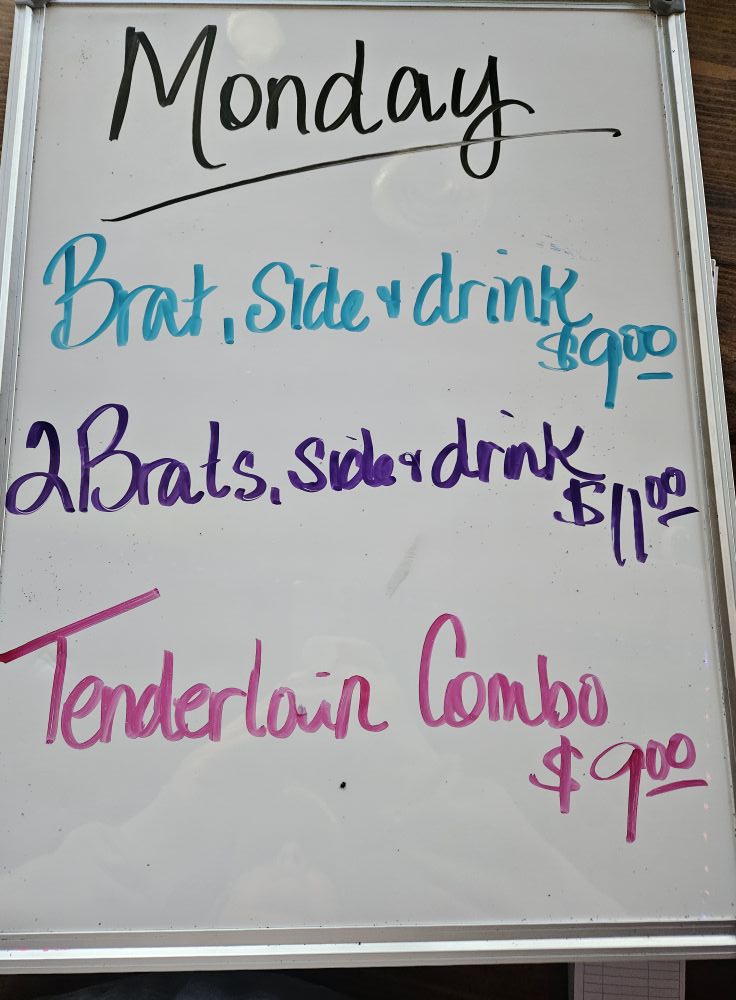 Monday
Brat, Side & drink
$9.00
2 Brats, Side & drink
$11.00
Tenderlain Combo
$9.00